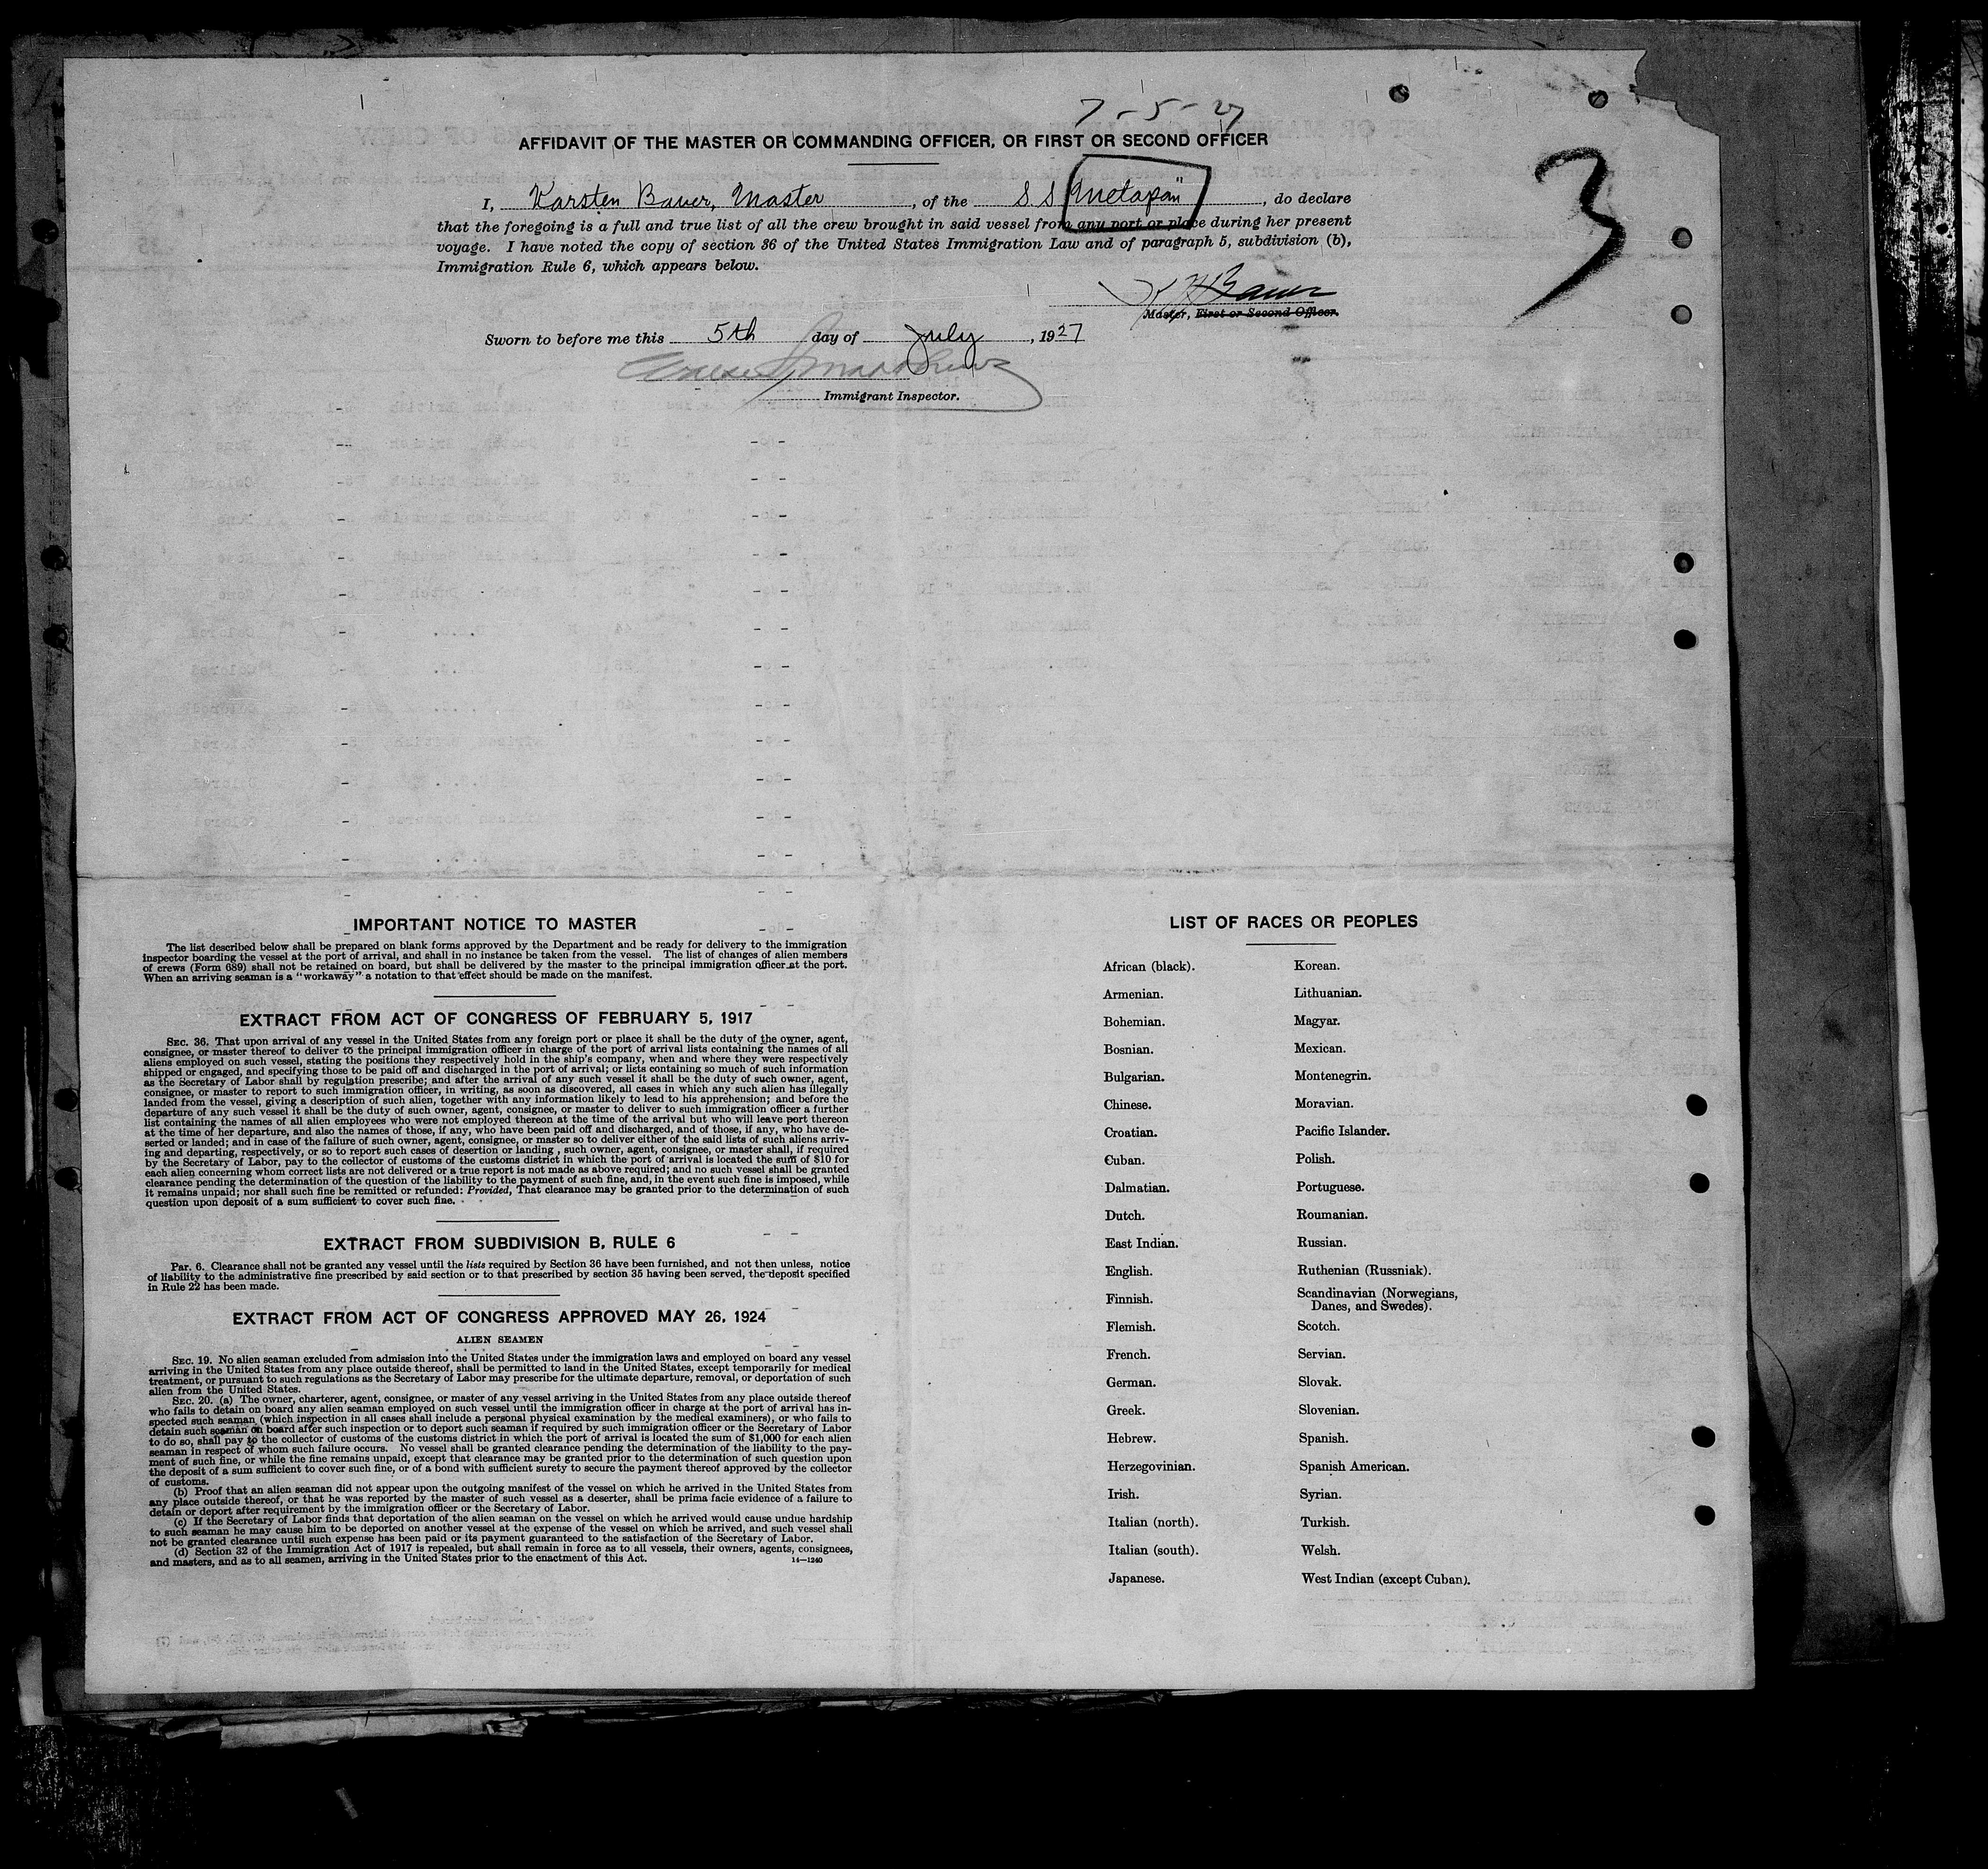 7-5-27
AFFIDAVIT OF THE MASTER OR COMMANDING OFFICER, OR FIRST OR SECOND OFFICER
3
I, Karsten Bauer, Master, of the S S "Metapan", do declare
that the foregoing is a full and true list of all the crew brought in said vessel from any port or place during her present
voyage. I have noted the copy of section 36 of the United States Immigration Law and of paragraph 5, subdivision (b),
Immigration Rule 6, which appears below.
K H Bauer
Master, First or Second Officer.
Sworn to before me this 5th day of July, 1927
Immigrant Inspector.
IMPORTANT NOTICE TO MASTER
The list described below shall be prepared on blank forms approved by the Department and be ready for delivery to the immigration
inspector boarding the vessel at the port of arrival, and shall in no instance be taken from the vessel. The list of changes of alien members
of crews (Form 689) shall not be retained on board, but shall be delivered by the master to the principal immigration officer at the port.
When an arriving seaman is a "workaway" a notation to that effect should be made on the manifest.
EXTRACT FROM ACT OF CONGRESS OF FEBRUARY 5, 1917
SEC. 36. That upon arrival of any vessel in the United States from any foreign port or place it shall be the duty of the owner, agent,
consignee, or master thereof to deliver to the principal immigration officer in charge of the port of arrival lists containing the names of all
aliens employed on such vessel, stating the positions they respectively hold in the ship's company, when and where they were respectively
shipped or engaged, and specifying those to be paid off and discharged in the port of arrival; or lists containing so much of such information
as the Secretary of Labor shall by regulation prescribe; and after the arrival of any such vessel it shall be the duty of such owner, agent,
consignee, or master to report to such immigration officer, in writing, as soon as discovered, all cases in which any such alien has illegally
landed from the vessel, giving a description of such alien, together with any information likely to lead to his apprehension; and before the
departure of any such vessel it shall be the duty of such owner, agent, consignee, or master to deliver to such immigration officer a further
list containing the names of all alien employees who were not employed thereon at the time of the arrival but who will leave port thereon
at the time of her departure, and also the names of those, if any, who have been paid off and discharged, and of those, if any, who have de-
serted or landed; and in case of the failure of such owner, agent, consignee, or master so to deliver either of the said lists of such aliens arriv-
ing and departing, respectively, or so to report such cases of desertion or landing, such owner, agent, consignee, or master shall, if required
by the Secretary of Labor, pay to the collector of customs of the customs district in which the port of arrival is located the sum of $10 for
each alien concerning whom correct lists are not delivered or a true report is not made as above required; and no such vessel shall be granted
clearance pending the determination of the question of the liability to the payment of such fine, and, in the event such fine is imposed, while
it remains unpaid; nor shall such fine be remitted or refunded: Provided, That clearance may be granted prior to the determination of such
question upon deposit of a sum sufficient to cover such fine.
EXTRACT FROM SUBDIVISION B, RULE 6
Par. 6. Clearance shall not be granted any vessel until the lists required by Section 36 have been furnished, and not then unless, notice
of liability to the administrative fine prescribed by said section or to that prescribed by section 35 having been served, the deposit specified
in Rule 22 has been made.
EXTRACT FROM ACT OF CONGRESS APPROVED MAY 26, 1924
ALIEN SEAMEN
SEC. 19. No alien seaman excluded from admission into the United States under the immigration laws and employed on board any vessel
arriving in the United States from any place outside thereof, shall be permitted to land in the United States, except temporarily for medical
treatment, or pursuant to such regulations as the Secretary of Labor may prescribe for the ultimate departure, removal, or deportation of such
alien from the United States.
SEC. 20. (a) The owner, charterer, agent, consignee, or master of any vessel arriving in the United States from any place outside thereof
who fails to detain on board any alien seaman employed on such vessel until the immigration officer in charge at the port of arrival has in-
spected such seaman (which inspection in all cases shall include a personal physical examination by the medical examiners), or who fails to
detain such seaman on board after such inspection or to deport such seaman if required by such immigration officer or the Secretary of Labor
to do so, shall pay to the collector of customs of the customs district in which the port of arrival is located the sum of $1,000 for each alien
seaman in respect of whom such failure occurs. No vessel shall be granted clearance pending the determination of the liability to the pay-
ment of such fine, or while the fine remains unpaid, except that clearance may be granted prior to the determination of such question upon
the deposit of a sum sufficient to cover such fine, or of a bond with sufficient surety to secure the payment thereof approved by the collector
of customs.
(b) Proof that an alien seaman did not appear upon the outgoing manifest of the vessel on which he arrived in the United States from
any place outside thereof, or that he was reported by the master of such vessel as a deserter, shall be prima facie evidence of a failure to
detain or deport after requirement by the immigration officer or the Secretary of Labor.
(c) If the Secretary of Labor finds that deportation of the alien seaman on the vessel on which he arrived would cause undue hardship
to such seaman he may cause him to be deported on another vessel at the expense of the vessel on which he arrived, and such vessel shall
not be granted clearance until such expense has been paid or its payment guaranteed to the satisfaction of the Secretary of Labor.
(d) Section 32 of the Immigration Act of 1917 is repealed, but shall remain in force as to all vessels, their owners, agents, consignees,
and masters, and as to all seamen, arriving in the United States prior to the enactment of this Act.
14—1240
LIST OF RACES OR PEOPLES
African (black).
Armenian.
Bohemian.
Bosnian.
Bulgarian.
Chinese.
Croatian.
Cuban.
Dalmatian.
Dutch.
East Indian.
English.
Finnish.
Flemish.
French.
German.
Greek.
Hebrew.
Herzegovinian.
Irish.
Italian (north).
Italian (south).
Japanese.
Korean.
Lithuanian.
Magyar.
Mexican.
Montenegrin.
Moravian.
Pacific Islander.
Polish.
Portuguese.
Roumanian.
Russian.
Ruthenian (Russniak).
Scandinavian (Norwegians,
Danes, and Swedes).
Scotch.
Servian.
Slovak.
Slovenian.
Spanish.
Spanish American.
Syrian.
Turkish.
Welsh.
West Indian (except Cuban).